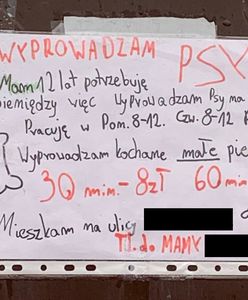 WYPROWADZAM PSY
Mam 12 lat potrzebuję
pieniędzy więc wyprowadzam Psy na
Pracuję w Pom. 8-12. Czw. 8-12
Wyprowadzam kochane małe
30 min.-8zł 60 min
Mieszkam na ulicy
Tl. do MAMY